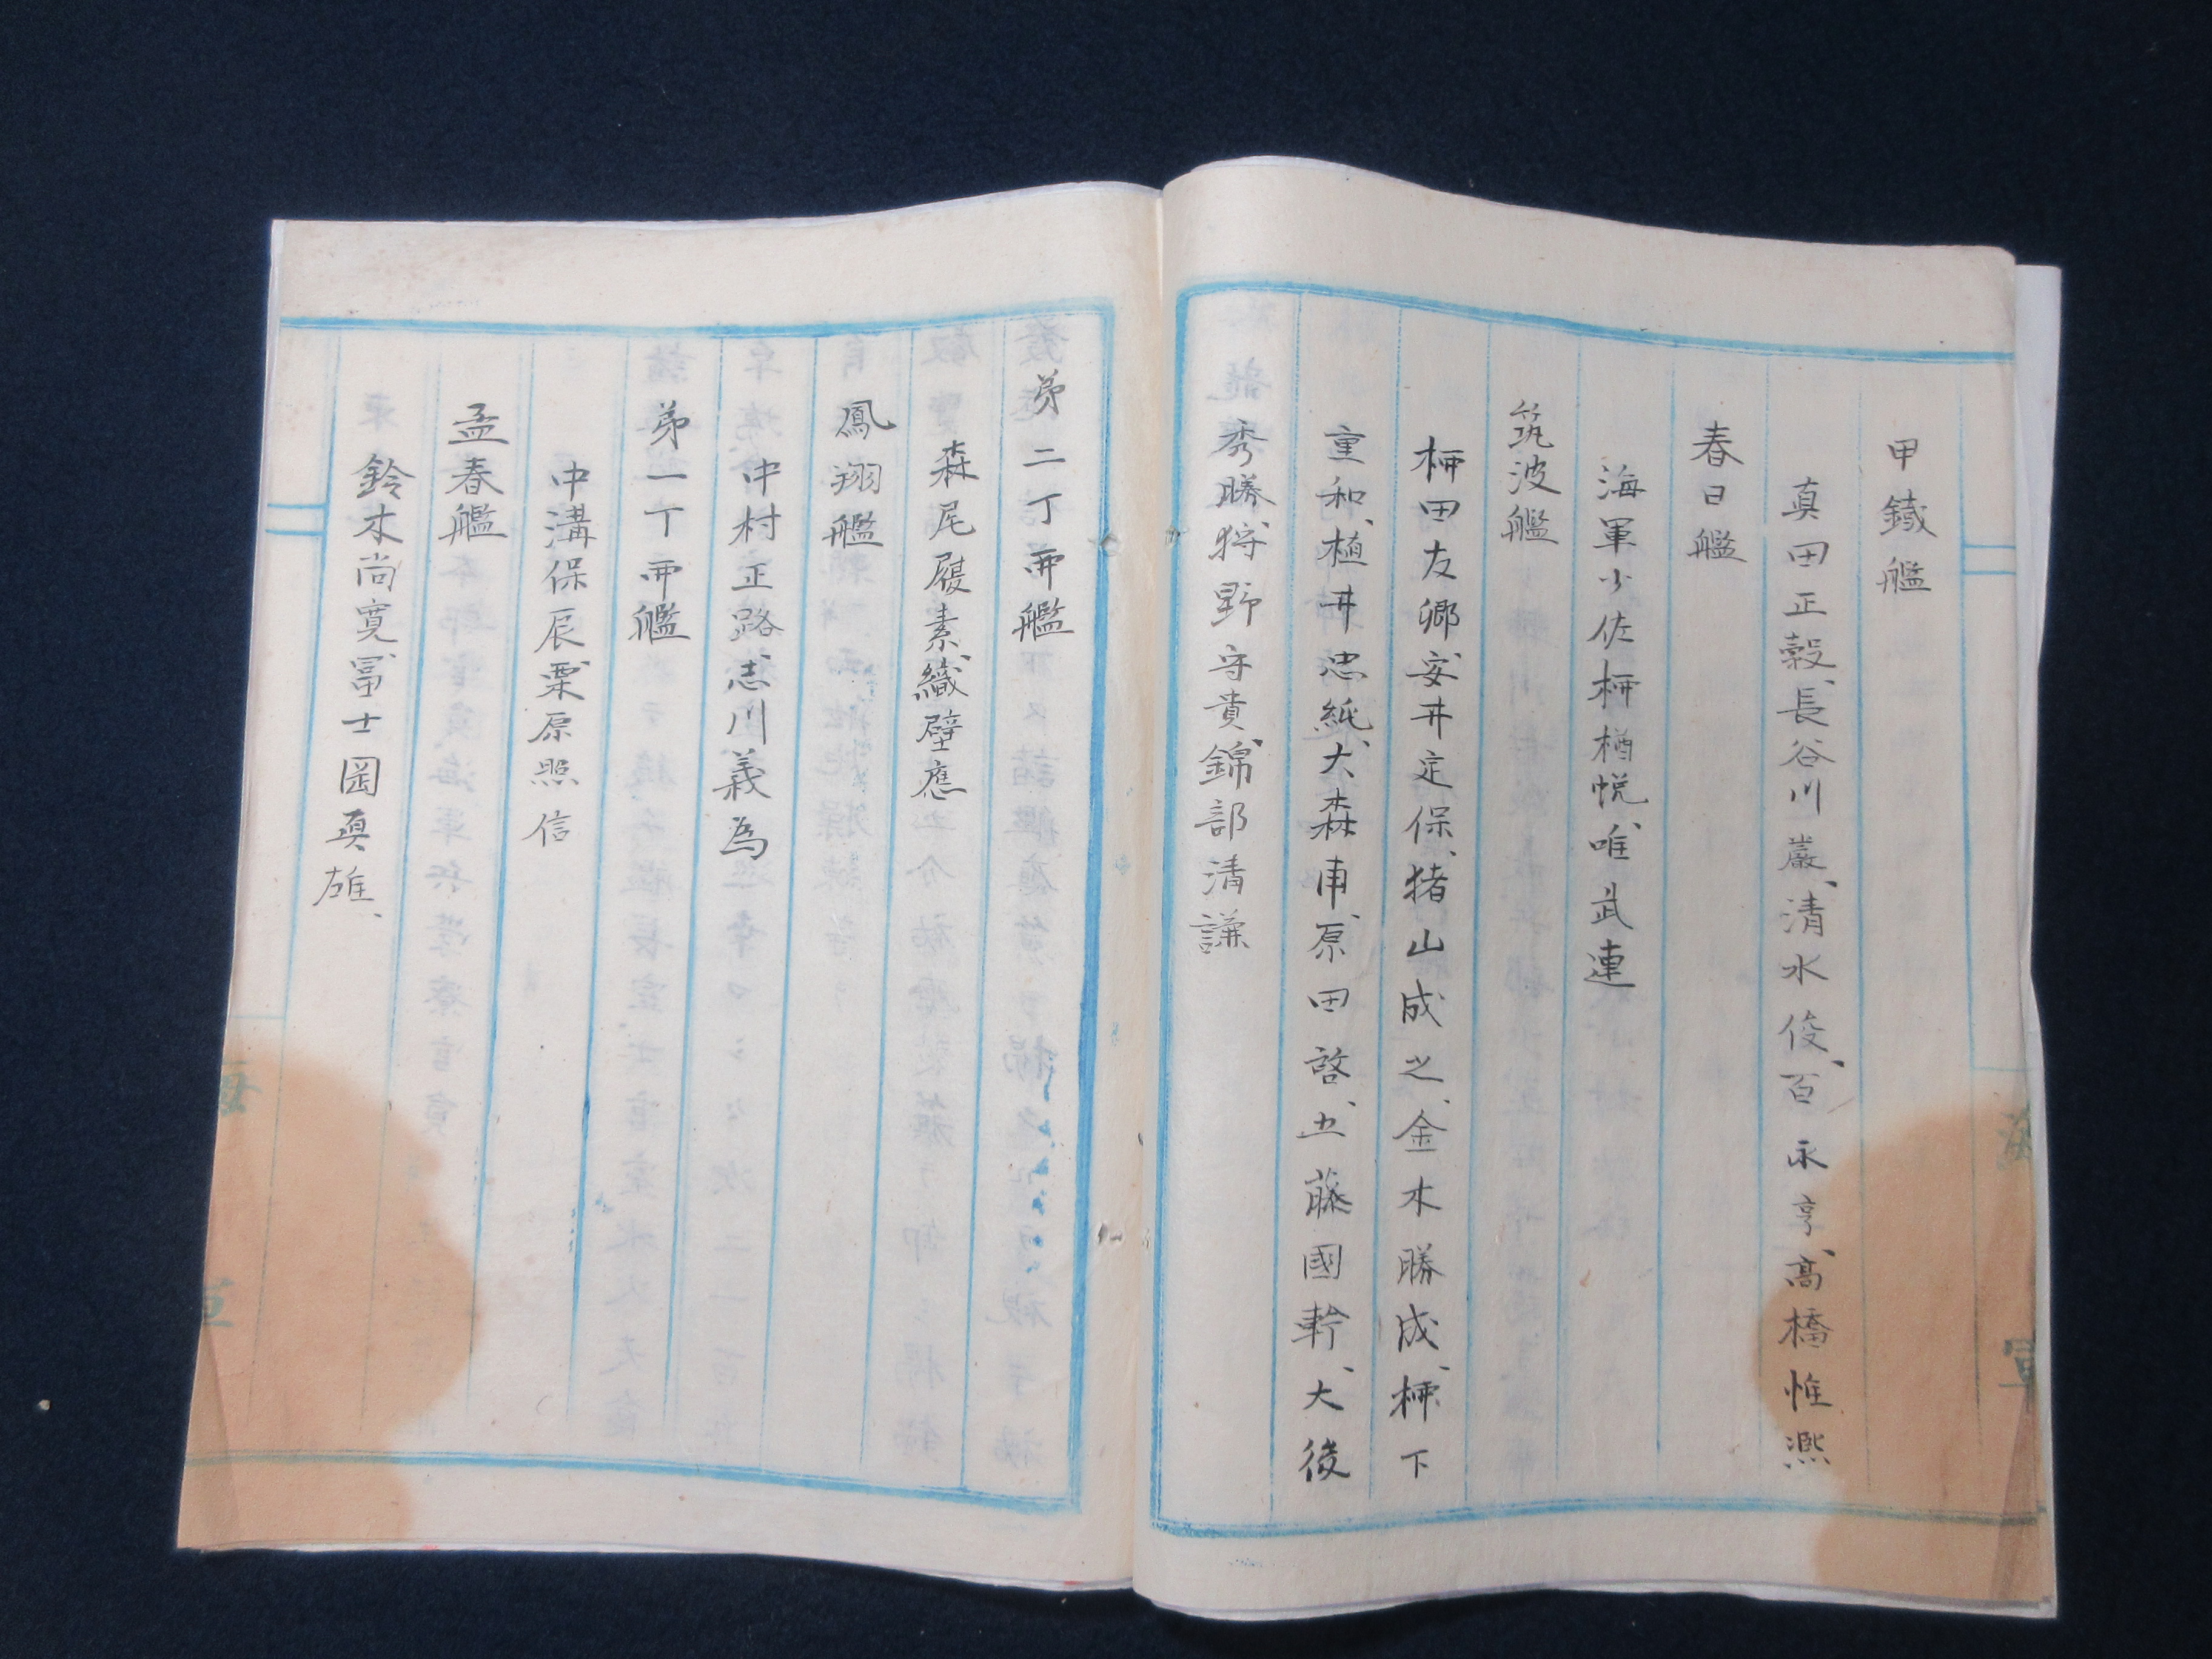 甲鐵艦
真田正毅、長谷川巌、清水俊、百永亨、高橋惟熈
春日艦
海軍少佐柳楢悦、唯武連
筑波艦
柳田友郷、安井定保、猪山成之、金木勝成、柳下
重和、植井忠純、大森甫、原田啓、五藤國幹、大後
秀勝、狩野守貴、錦部清謙
苐二丁卯艦
森尾履素、織壁應
鳳翔艦
中村正路、志川義為
苐一丁卯艦
中溝保辰、栗原照信
孟春艦
鈴木尚寛、冨士岡真雄、
海軍
海軍